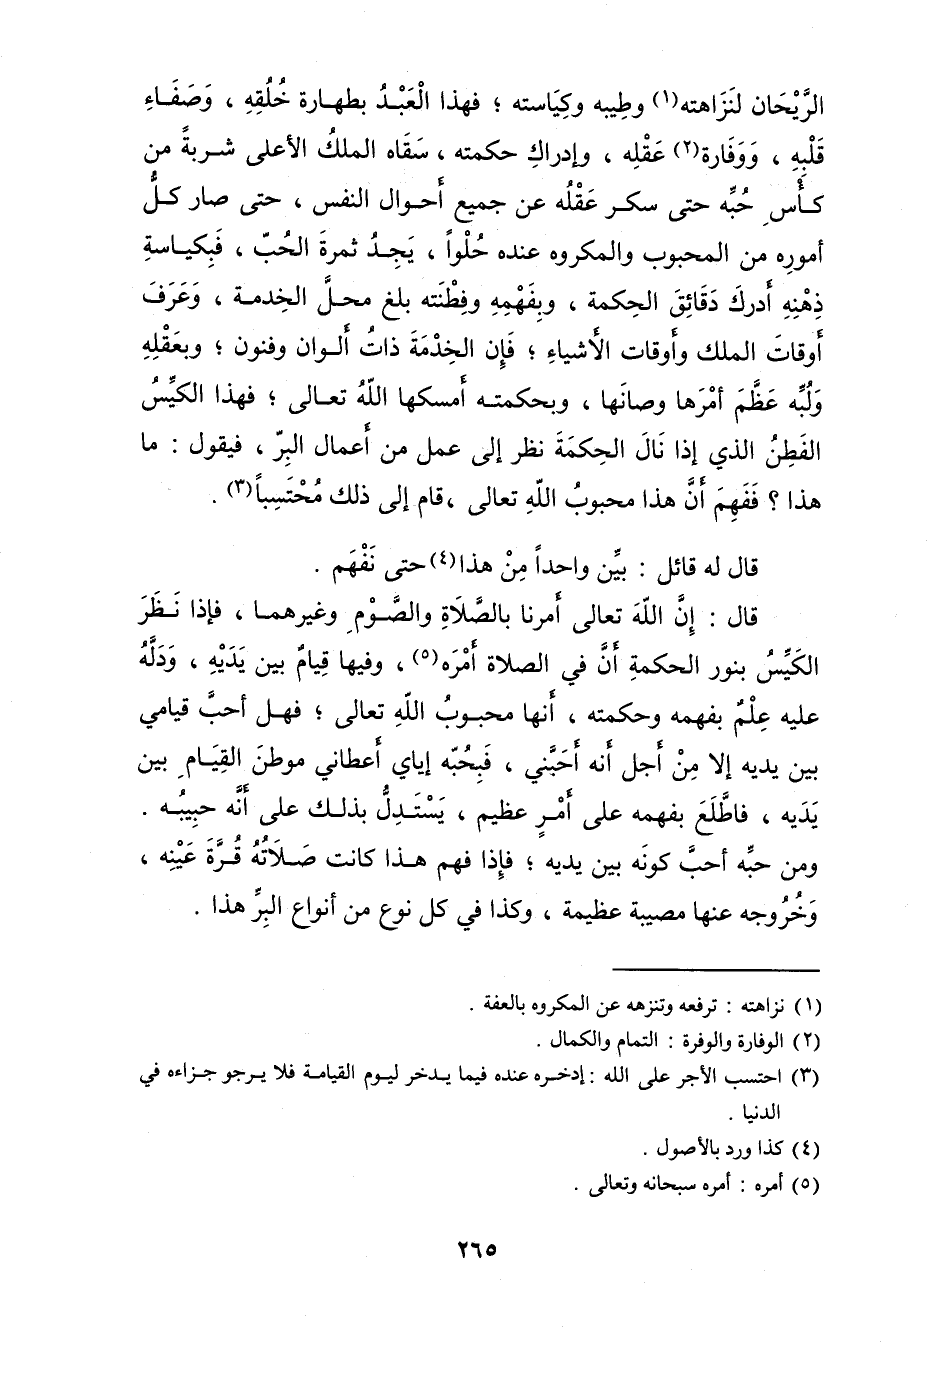 الرَّيْحَان لنَزَاهته(١) وطِيبه وكِيَاسته ؛ فهذا الْعَبْدُ بطهارة خُلُقِهِ ، وَصَفَاءِ
قَلْبِهِ ، وَوَفَارة(٢) عَقْلِه ، وإدراكِ حكمته ، سَقَاه الملكُ الأعلى شربةً من
كأْسِ حُبِّه حتى سكر عَقْلُه عن جميع أَحوال النفس ، حتى صار كلُّ
أموره من المحبوب والمكروه عنده حُلْواً ، يَجِدُ ثمرةَ الحُبّ ، فَبِكياسةِ
ذِهْنِهِ أَدركَ دَقَائِقَ الحكمة ، وبِفَهْمِهِ وفِطْنَته بلغ محلَّ الخِدمة ، وَعَرَفَ
أَوقاتَ الملك وأَوقات الأَشياءِ ؛ فَإِن الخِدْمَةَ ذاتُ أَلوان وفنون ؛ وبعَقْلِهِ
وَلُبِّه عَظَّمَ أمْرَها وصانَها ، وبحكمته أَمسكها اللّهُ تعالى ؛ فهذا الكَيِّسُ
الفَطِنُ الذي إذا نَالَ الحِكمَةَ نظر إلى عمل من أَعمال البِرّ ، فيقول : ما
هذا ؟ فَفَهِمَ أَنَّ هذا محبوبُ اللّهِ تعالى ، قام إلى ذلك مُحْتَسِباً(٣) .
قال له قائل : بيِّن واحداً مِنْ هذا(٤) حتى نَفْهَم .
قال : إِنَّ اللّهَ تعالى أَمرنا بالصَّلَاةِ والصَّوْمِ وغيرهما ، فإذا نَظَرَ
الكَيِّسُ بنور الحكمةِ أَنَّ في الصلاة أَمْرَه(٥) ، وفيها قِيامٌ بين يَدَيْهِ ، وَدَلَّهُ
عليه عِلْمٌ بفهمه وحكمته ، أَنها محبوبُ اللّهِ تعالى ؛ فهل أحبَّ قيامي
بين يديه إلا مِنْ أَجل أَنه أَحَبَّني ، فَبِحُبّه إياي أَعطاني موطنَ القِيَامِ بين
يَدَيه ، فاطَّلَعَ بفهمه على أَمْرٍ عظيم ، يَسْتَدِلُّ بذلك على أَنَّه حبيبُه .
ومن حبِّه أحبَّ كونَه بين يديه ؛ فإذا فهم هذا كانت صَلَاتُهُ قُرَّةَ عَيْنِه ،
وَخُرُوجه عنها مصيبة عظيمة ، وكذا في كل نوع من أنواع البِرِّ هذا .
(١) نزاهته : ترفعه وتنزهه عن المكروه بالعفة .
(٢) الوفارة والوفرة : التمام والكمال .
(٣) احتسب الأجر على الله : إدخره عنده فيما يدخر ليوم القيامة فلا يرجو جزاءه في
الدنيا .
(٤) كذا ورد بالأصول .
(٥) أمره : أمره سبحانه وتعالى .
٢٦٥